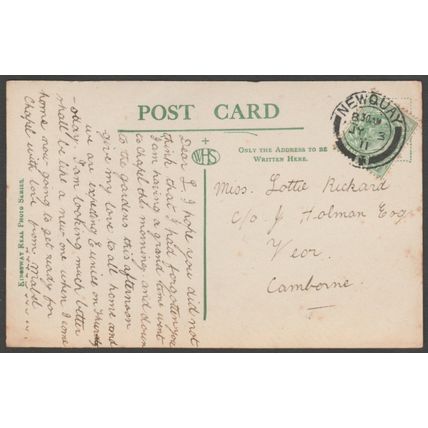 POST CARD
WHS
ONLY THE ADDRESS TO BE
WRITTEN HERE.
KINGSWAY REAL PHOTO SERIES.
NEWQUAY
8.30AM
JY 3
11
Miss. Lottie Rickard
c/o J. Holman Esq
Veor
Camborne.
Dear L. I hope you did not
think that I had forgotten you
I am having a grand time went
to chapel this morning. and down
to the gardens this afternoon
give my love to all home and
we are expecting Eunice on Thursday
-okay. I am looking much better
shall be like a new one when I come
home now going to get ready for
Chapel with love from Mabel